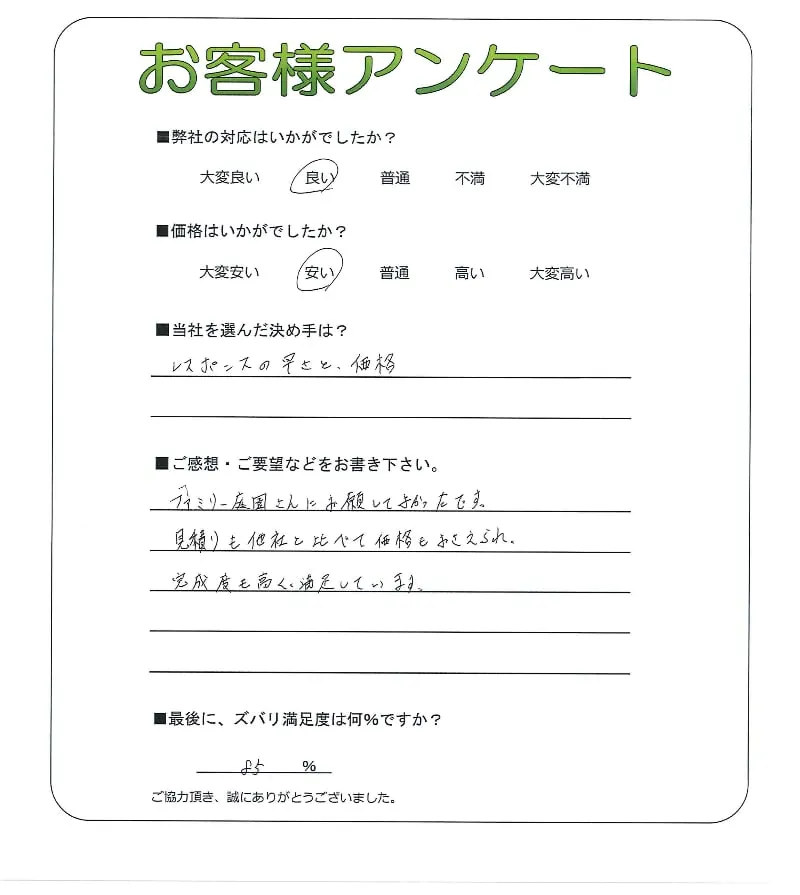 お客様アンケート
■弊社の対応はいかがでしたか？
大変良い 良い 普通 不満 大変不満
■価格はいかがでしたか？
大変安い 安い 普通 高い 大変高い
■当社を選んだ決め手は？
レスポンスの早さと、価格
■ご感想・ご要望などをお書き下さい。
ファミリー庭園さんにお願いしてよかったです。
見積りも他社と比べて価格もおさえられ、
完成度も高く、満足しています。
■最後に、ズバリ満足度は何%ですか？
85 %
ご協力頂き、誠にありがとうございました。